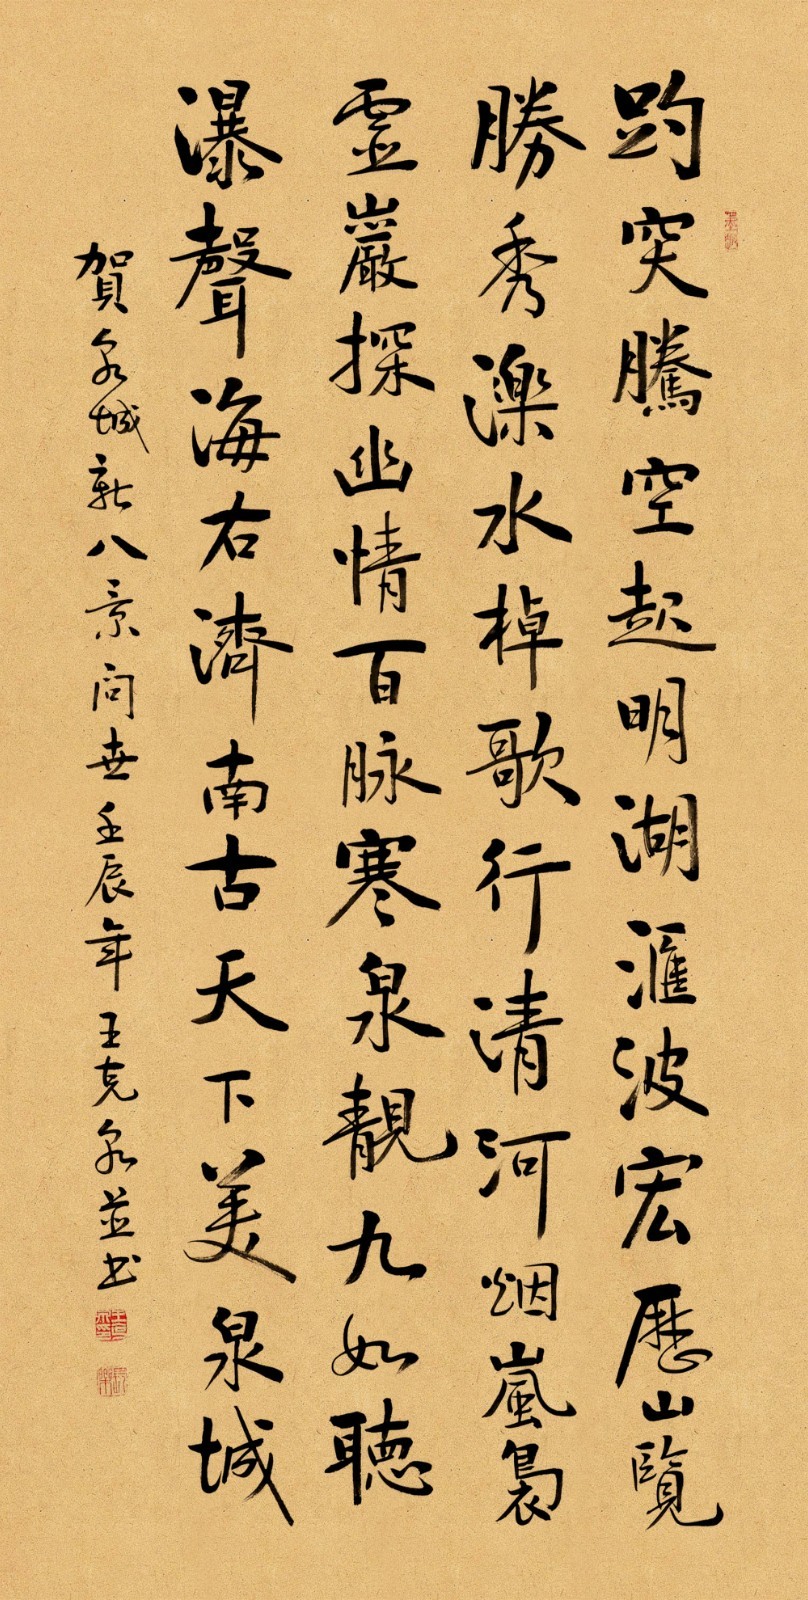 趵突騰空起明湖滙波宏歷山覽
勝秀濼水棹歌行清河烟嵐裊
靈巖探幽情百脉寒泉靚九如聽
瀑聲海右濟南古天下美泉城
賀泉城新八景问世壬辰年王克泉並书